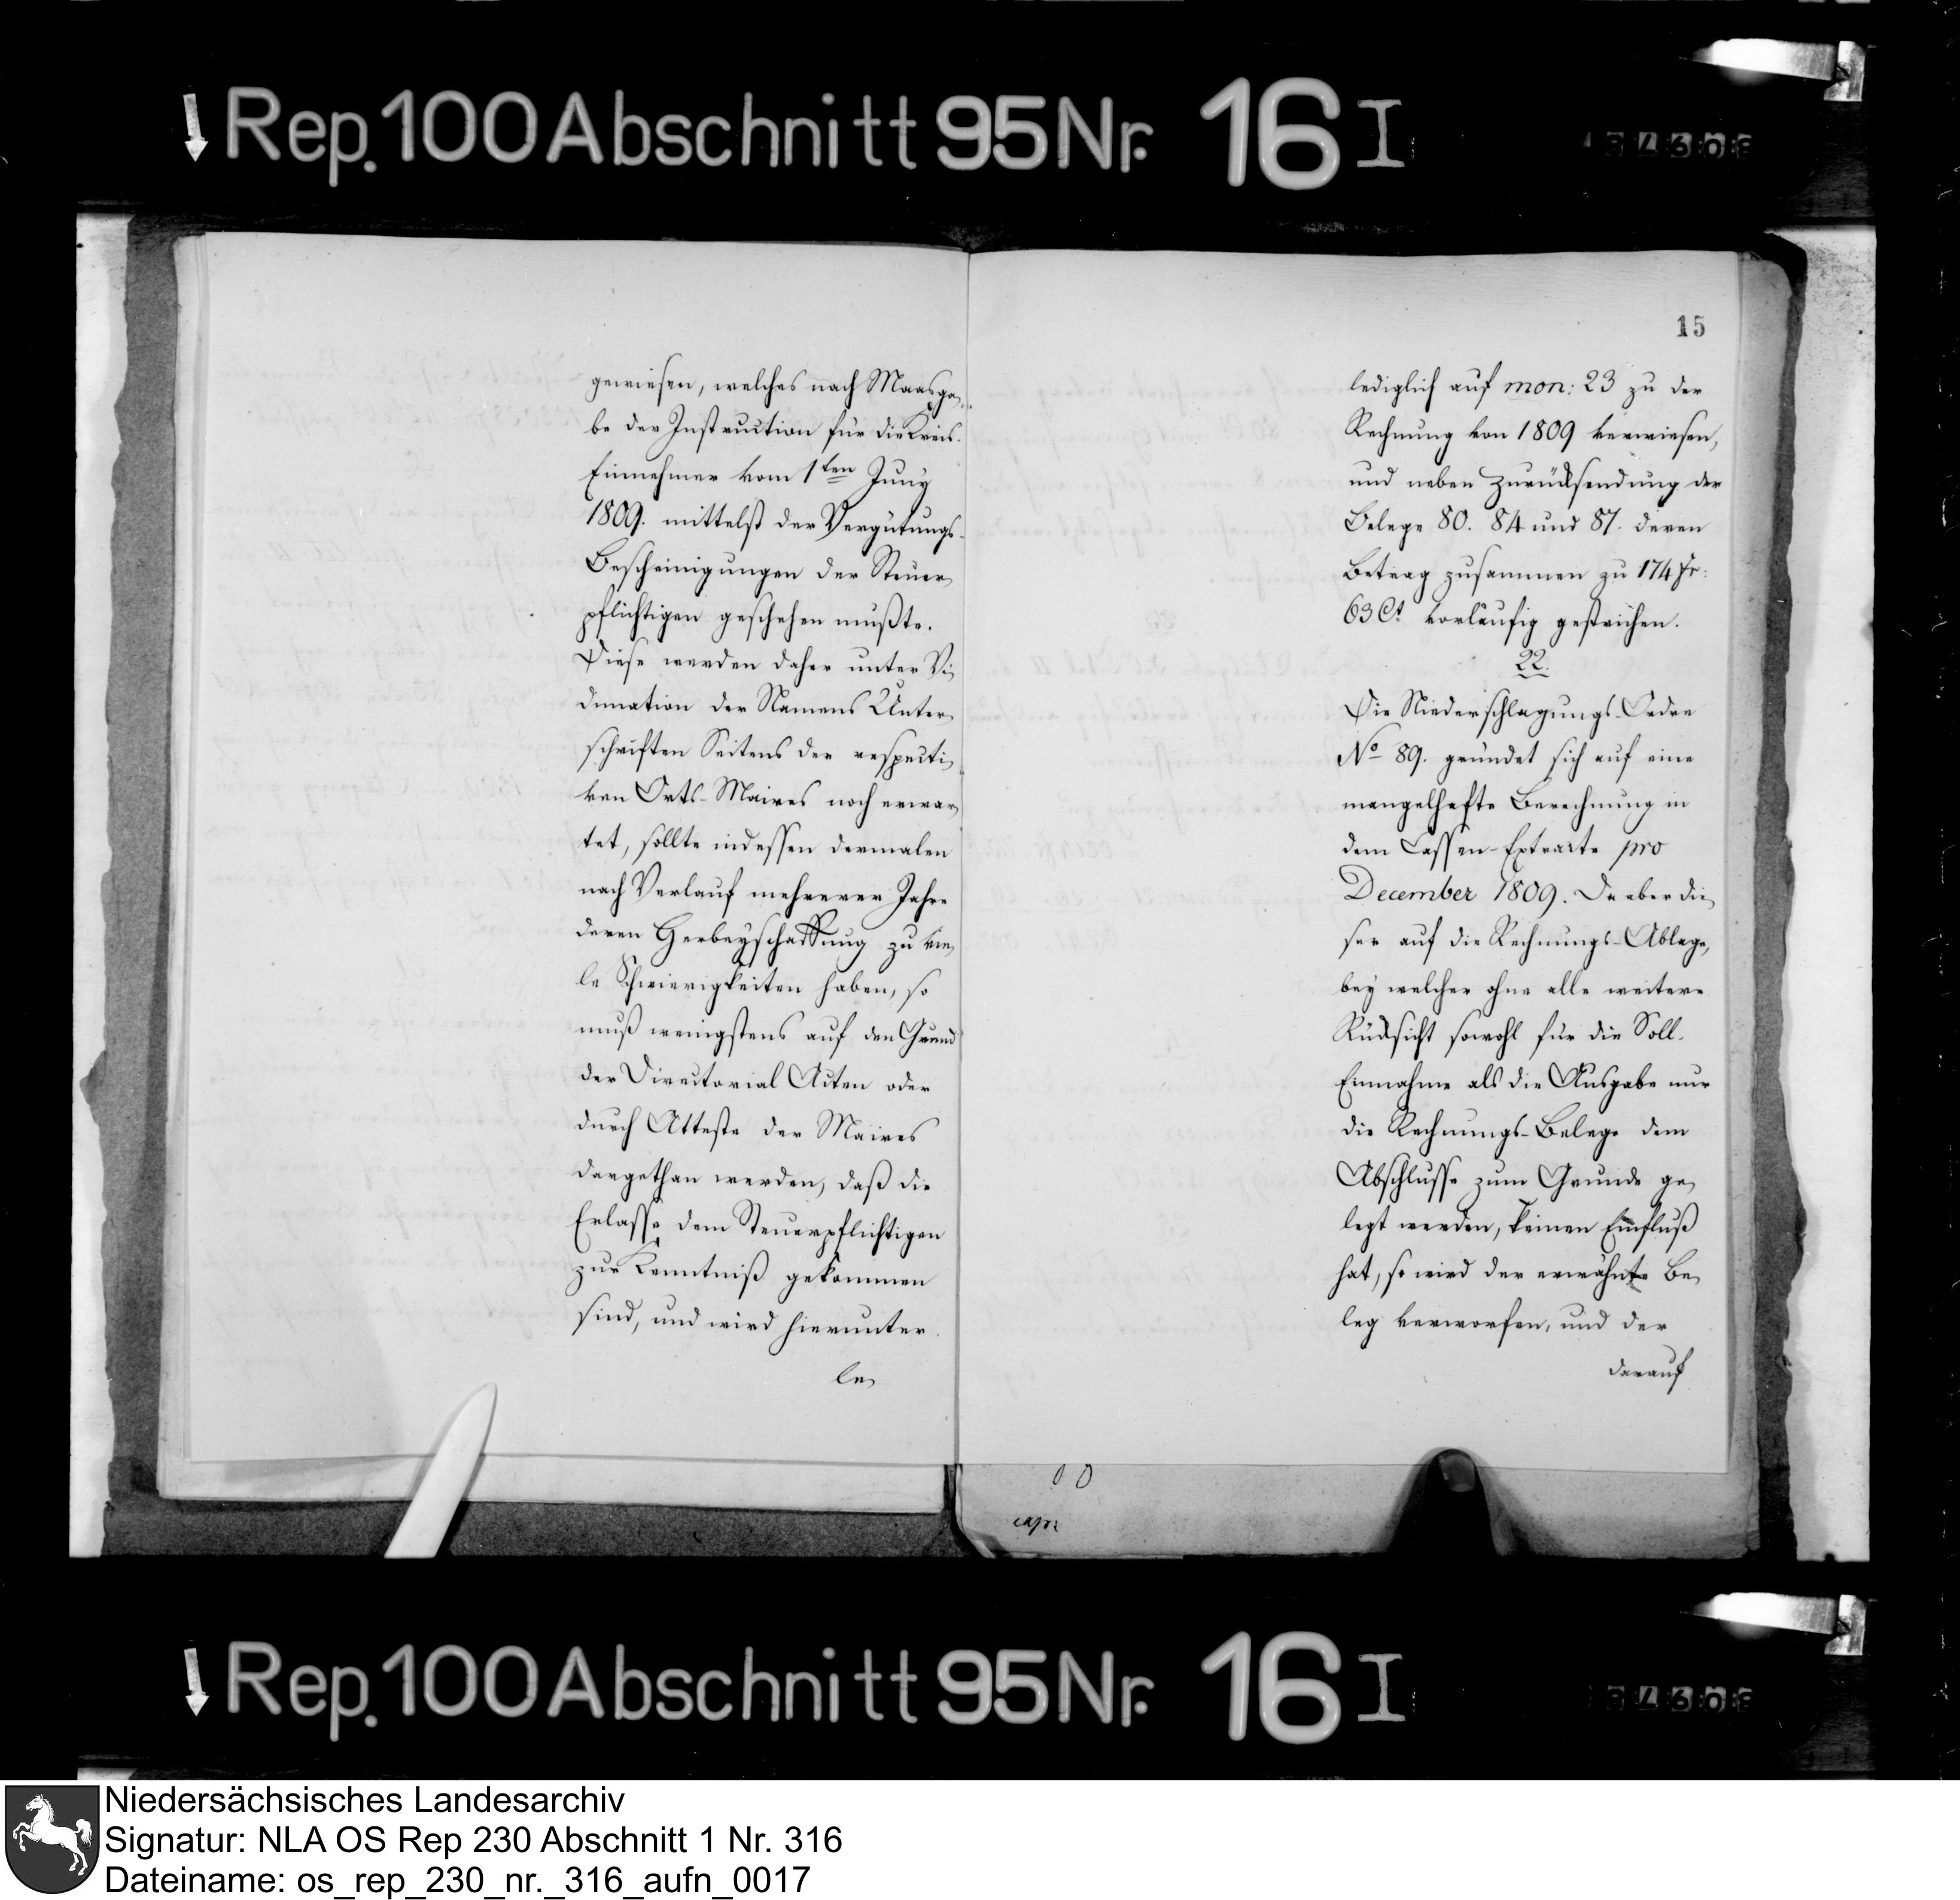 Rep. 100 Abschnitt 95 Nr. 16 I
gewiesen, welches nach Maasga,
be der Instruction für die Kreis-
Einnehmer vom 1ten Juny
1809. mittelst der Vergütungs-
Bescheinigungen der Steuer,
pflichtigen geschehen mußte.
Diese werden daher unter Vi,
dimation der Namens Unter,
schriften Seitens der respecti,
ven Orts-Maires noch erwar,
tet, sollte indessen dermalen
nach Verlauf mehrerer Jahre
deren Herbeyschaffung zu vie,
le Schwierigkeiten haben, so
muß wenigstens auf den Grund
der Directorial Acten oder
durch Atteste der Maires
dargethan werden, daß die
Erlasse dem Steuerpflichtigen
zur Kenntniß gekommen
sind, und wird hierunter
le,
15
lediglich auf mon: 23 zu der
Rechnung von 1809 verwiesen,
und neben Zurücksendung der
Belege 80. 84 und 87. deren
Betrag zusammen zu 174 fr:
63 Ct vorläufig gestrichen.
22.
Die Niederschlagungs-Ordre
No 89. gründet sich auf eine
mangelhafte Berechnung in
dem Cassen-Extracte pro
December 1809. Da aber die,
ser auf die Rechnungs-Ablage,
bey welcher ohne alle weitere
Rücksicht sowohl für die Soll-
Einnahme als die Ausgabe nur
die Rechnungs-Belege dem
Abschlusse zum Grunde ge,
legt werden, keinen Einfluß
hat, so wird der erwähnte Be,
leg verworfen, und der
darauf
Rep. 100 Abschnitt 95 Nr. 16 I
Niedersächsisches Landesarchiv
Signatur: NLA OS Rep 230 Abschnitt 1 Nr. 316
Dateiname: os_rep_230_nr._316_aufn_0017